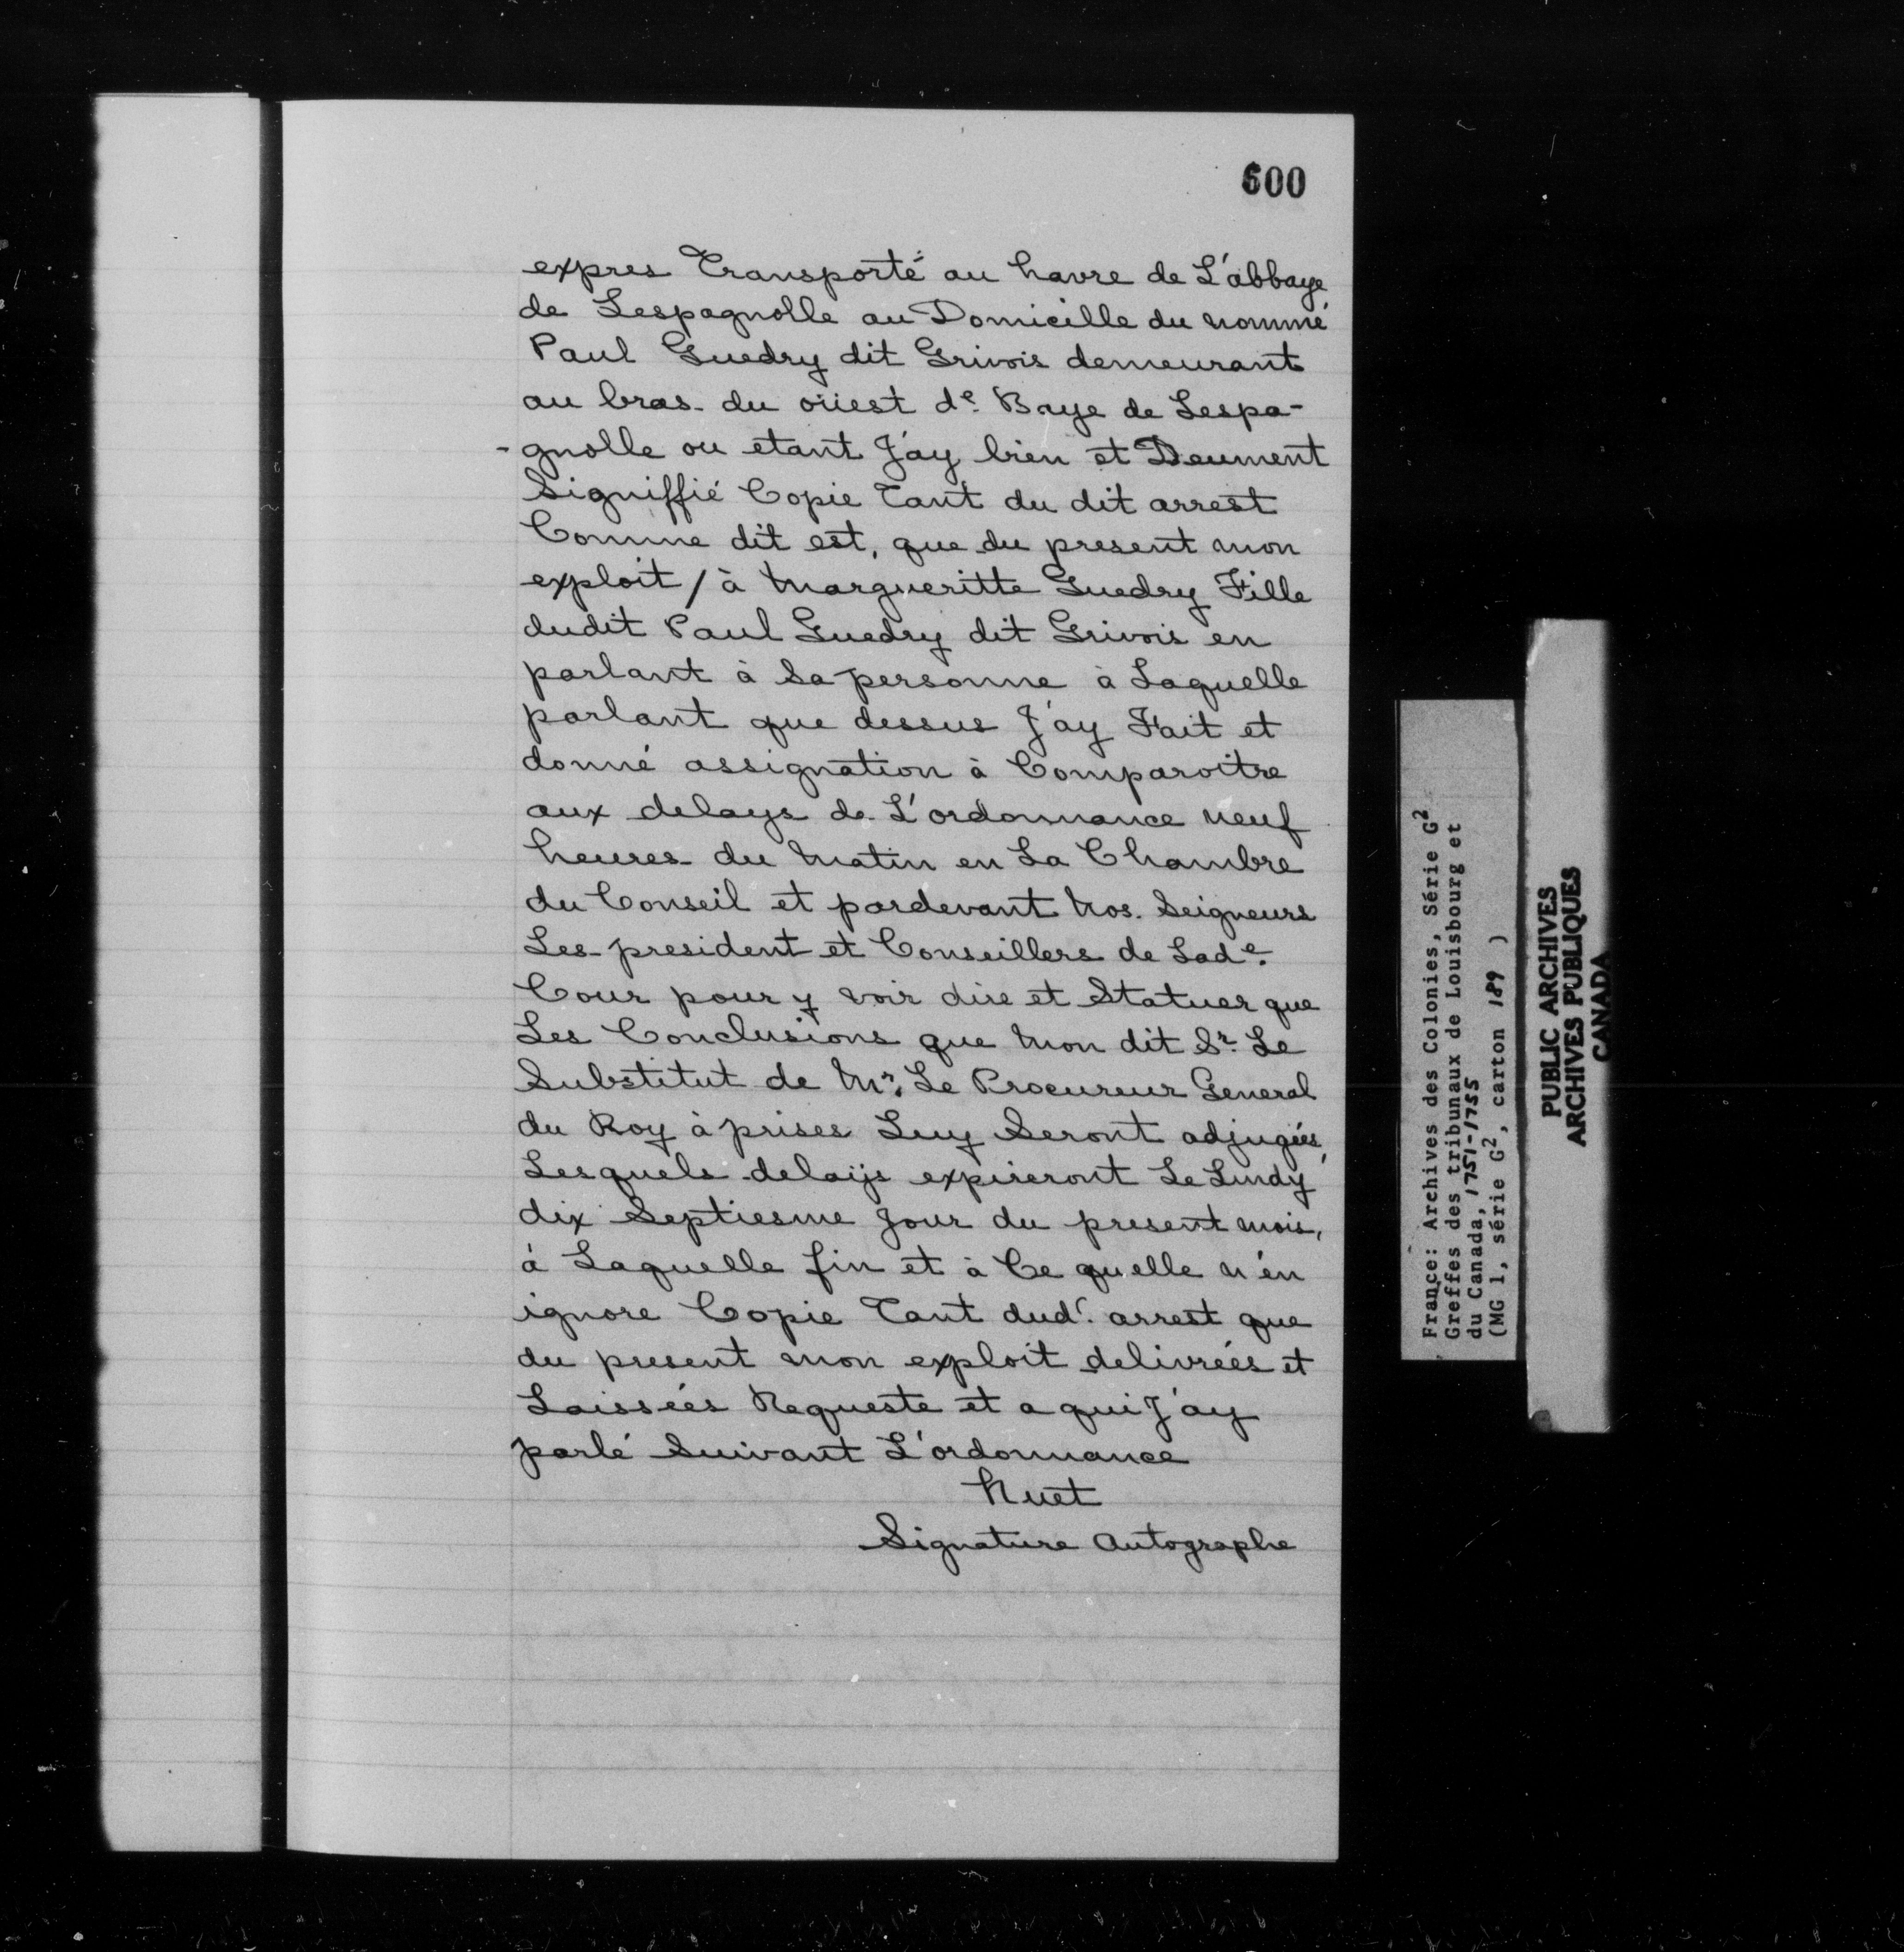 600
expres Transporté au havre de L'abbaye
de Lespagnolle au Domicille du nommé
Paul Guedry dit Grivois demeurant
au bras du oüest de. Baye de Lespa-
-gnolle ou etant J'ay bien et Deument
Signiffié Copie Tant du dit arrest
Comme dit est, que du present mon
exploit / à Margueritte Guedry Fille
dudit Paul Guedry dit Grivois en
parlant à Sa personne à Laquelle
parlant que dessus J'ay Fait et
donné assignation à Comparoitre
aux delays de L'ordonnance neuf
heures du Matin en La Chambre
du Conseil et pardevant Nos. Seigneurs
Les president et Conseillers de Lade.
Cour pour y voir dire et Statuer que
Les Conclusions que Mon dit Sr. Le
Substitut de Mr. Le Procureur General
du Roy à prises Luy Seront adjugées,
Lesquels delaÿs expireront Le Lundy
dix Septiesme Jour du present mois,
à Laquelle fin et à Ce quelle n'én
ignore Copie Tant dudt. arrest que
du present mon exploit delivrées et
Laissées Requeste et a qui J'ay
parlé Suivant L'ordonnance
Huet
Signature Autographe
France: Archives des Colonies, Série G²
Greffes des tribunaux de Louisbourg et
du Canada, 1751-1755
(MG 1, série G², carton 189 )
PUBLIC ARCHIVES
ARCHIVES PUBLIQUES
CANADA